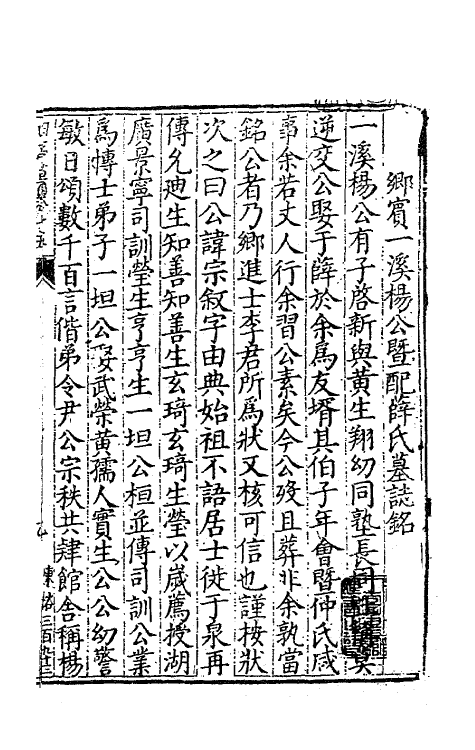 鄉賓一溪楊公暨配薛氏墓誌銘
一溪楊公有子啓新與黃生翔幼同塾長同
逆交公娶于薛於余為友壻其伯子年會暨仲氏咸
事余若丈人行余習公素矣今公歿且葬非余孰當
銘公者乃鄉進士李君所為狀又核可信也謹按狀
次之曰公諱宗敘字由典始祖不語居士徙于泉再
傳允廸生知善知善生玄琦玄琦生瑩以歲薦授湖
廣景寧司訓瑩生亨亨生一坦公桓並傳司訓公業
為博士弟子一坦公娶武榮黃孺人實生公公幼警
敏日頌數千百言偕弟令尹公宗秩共肄館舍稱楊